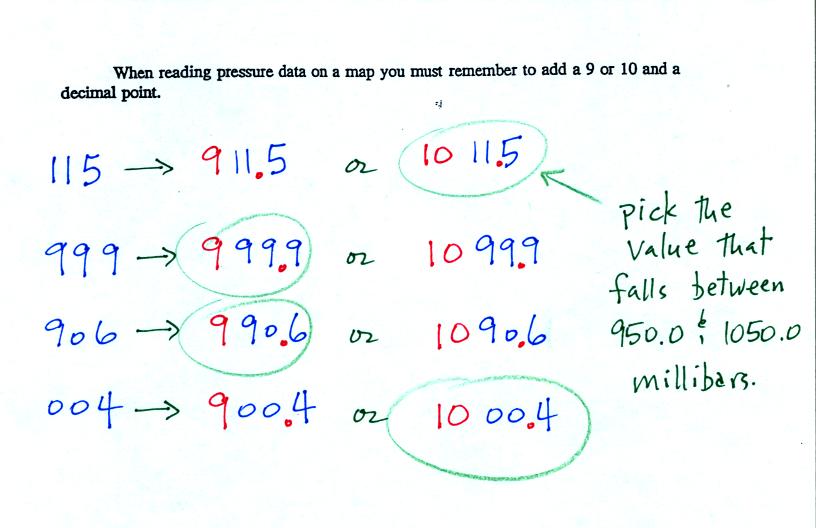 When reading pressure data on a map you must remember to add a 9 or 10 and a
decimal point.
115 → 911.5 or 10 11.5
999 → 999.9 or 10 99.9
906 → 990.6 or 10 90.6
004 → 900.4 or 10 00.4
pick the
value that
falls between
950.0 & 1050.0
millibars.